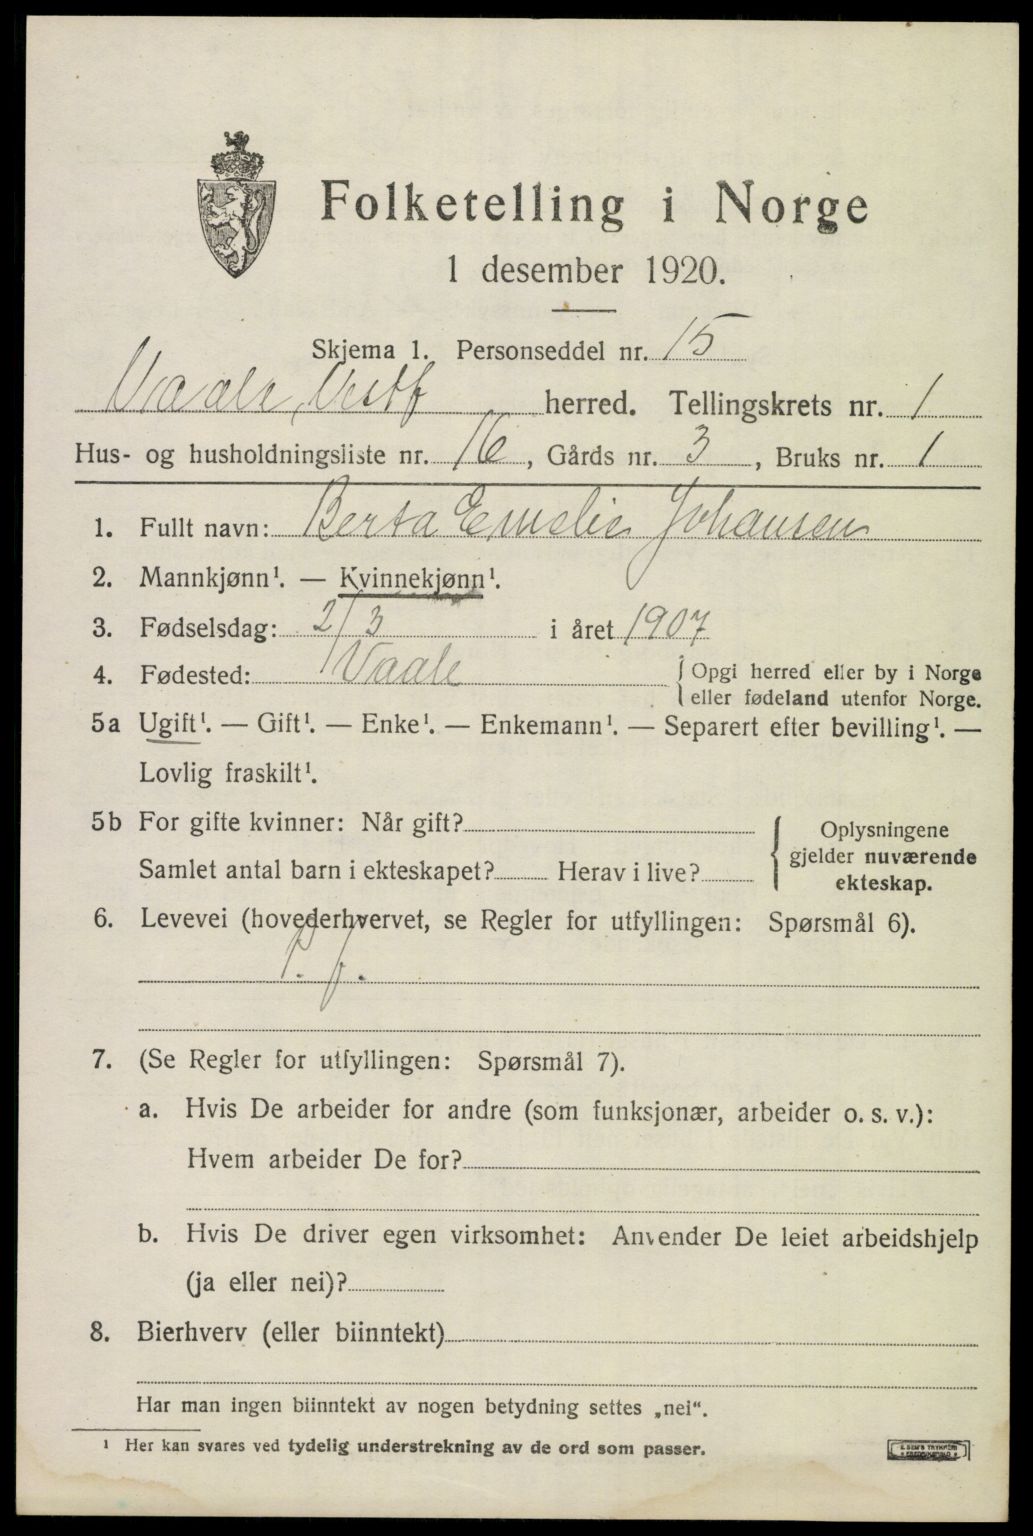 Folketelling i Norge
1 desember 1920.
Skjema 1. Personseddel nr. 15
Vaale, Vestf herred. Tellingskrets nr. 1
Hus- og husholdningsliste nr. 16, Gårds nr. 3, Bruks nr. 1
1. Fullt navn: Berta Emelie Johansen
2. Mannkjønn¹. — Kvinnekjønn¹.
3. Fødselsdag: 2/3 i året 1907
4. Fødested: Vaale { Opgi herred eller by i Norge
eller fødeland utenfor Norge.
5a Ugift¹. — Gift¹. — Enke¹. — Enkemann¹. — Separert efter bevilling¹. —
Lovlig fraskilt¹.
5b For gifte kvinner: Når gift?
Samlet antal barn i ekteskapet? Herav i live?
Oplysningene
gjelder nuværende
ekteskap.
6. Levevei (hovederhvervet, se Regler for utfyllingen: Spørsmål 6).
P. f.
7. (Se Regler for utfyllingen: Spørsmål 7).
a. Hvis De arbeider for andre (som funksjonær, arbeider o. s. v.):
Hvem arbeider De for?
b. Hvis De driver egen virksomhet: Anvender De leiet arbeidshjelp
(ja eller nei)?
8. Bierhverv (eller biinntekt)
Har man ingen biinntekt av nogen betydning settes „nei“.
¹ Her kan svares ved tydelig understrekning av de ord som passer.